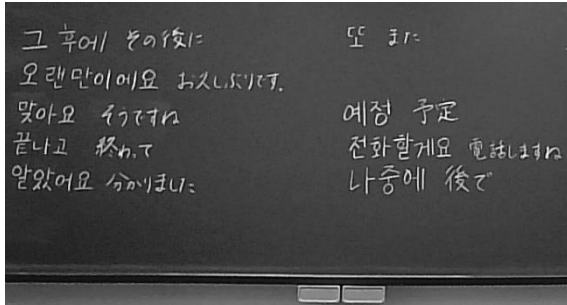 그 후에 その後に
오랜만이에요 お久しぶりです.
맞아요 そうですね
끝나고 終わって
알았어요 分かりました
또 また
예정 予定
전화할게요 電話しますね
나중에 後で